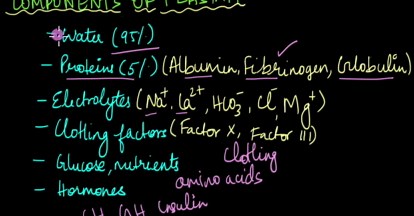 COMPONENTS OF PLASMA
→ Water (95%)
- Proteins (5%) (Albumin, Fibrinogen, Globulin)
- Electrolytes (Na⁺, Ca²⁺, HCO₃⁻, Cl⁻, Mg⁺)
- Clotting factors (Factor X, Factor III)
- Glucose, nutrients Clotting
amino acids
- Hormones
insulin